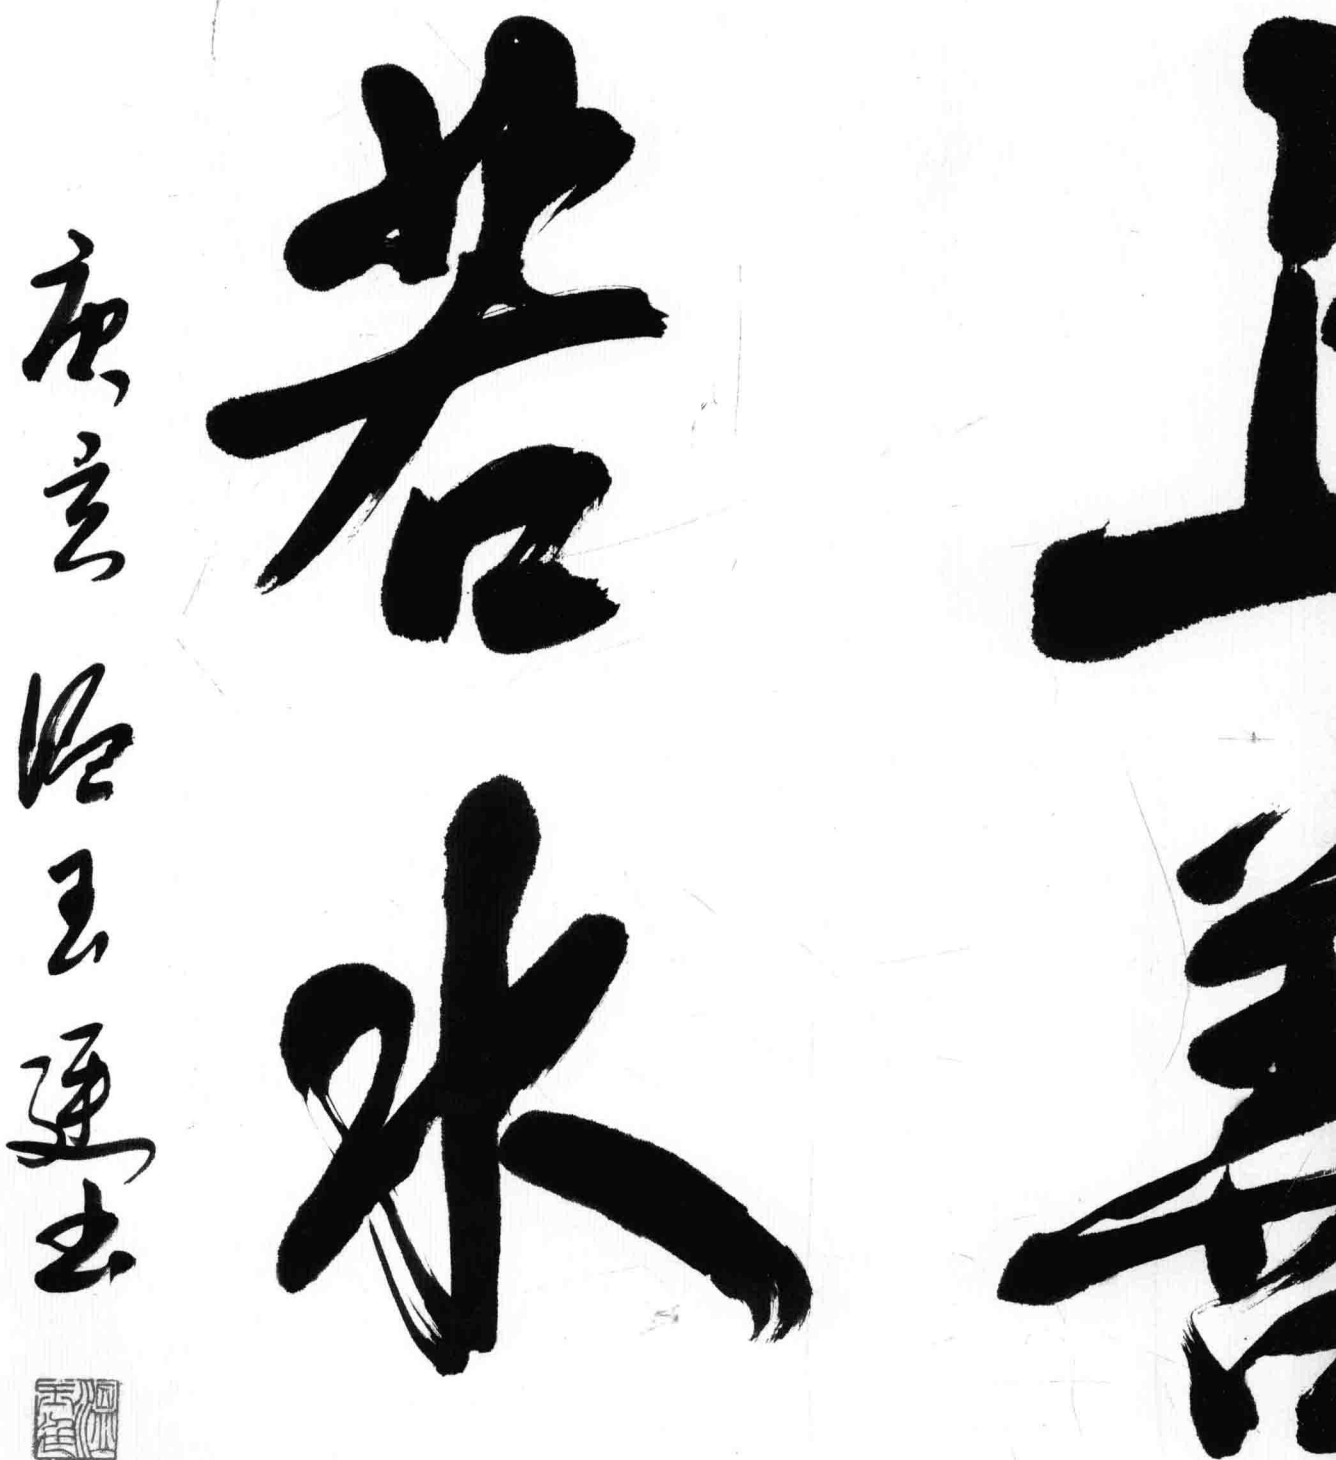 上善
若水
庚寅 温玉建书